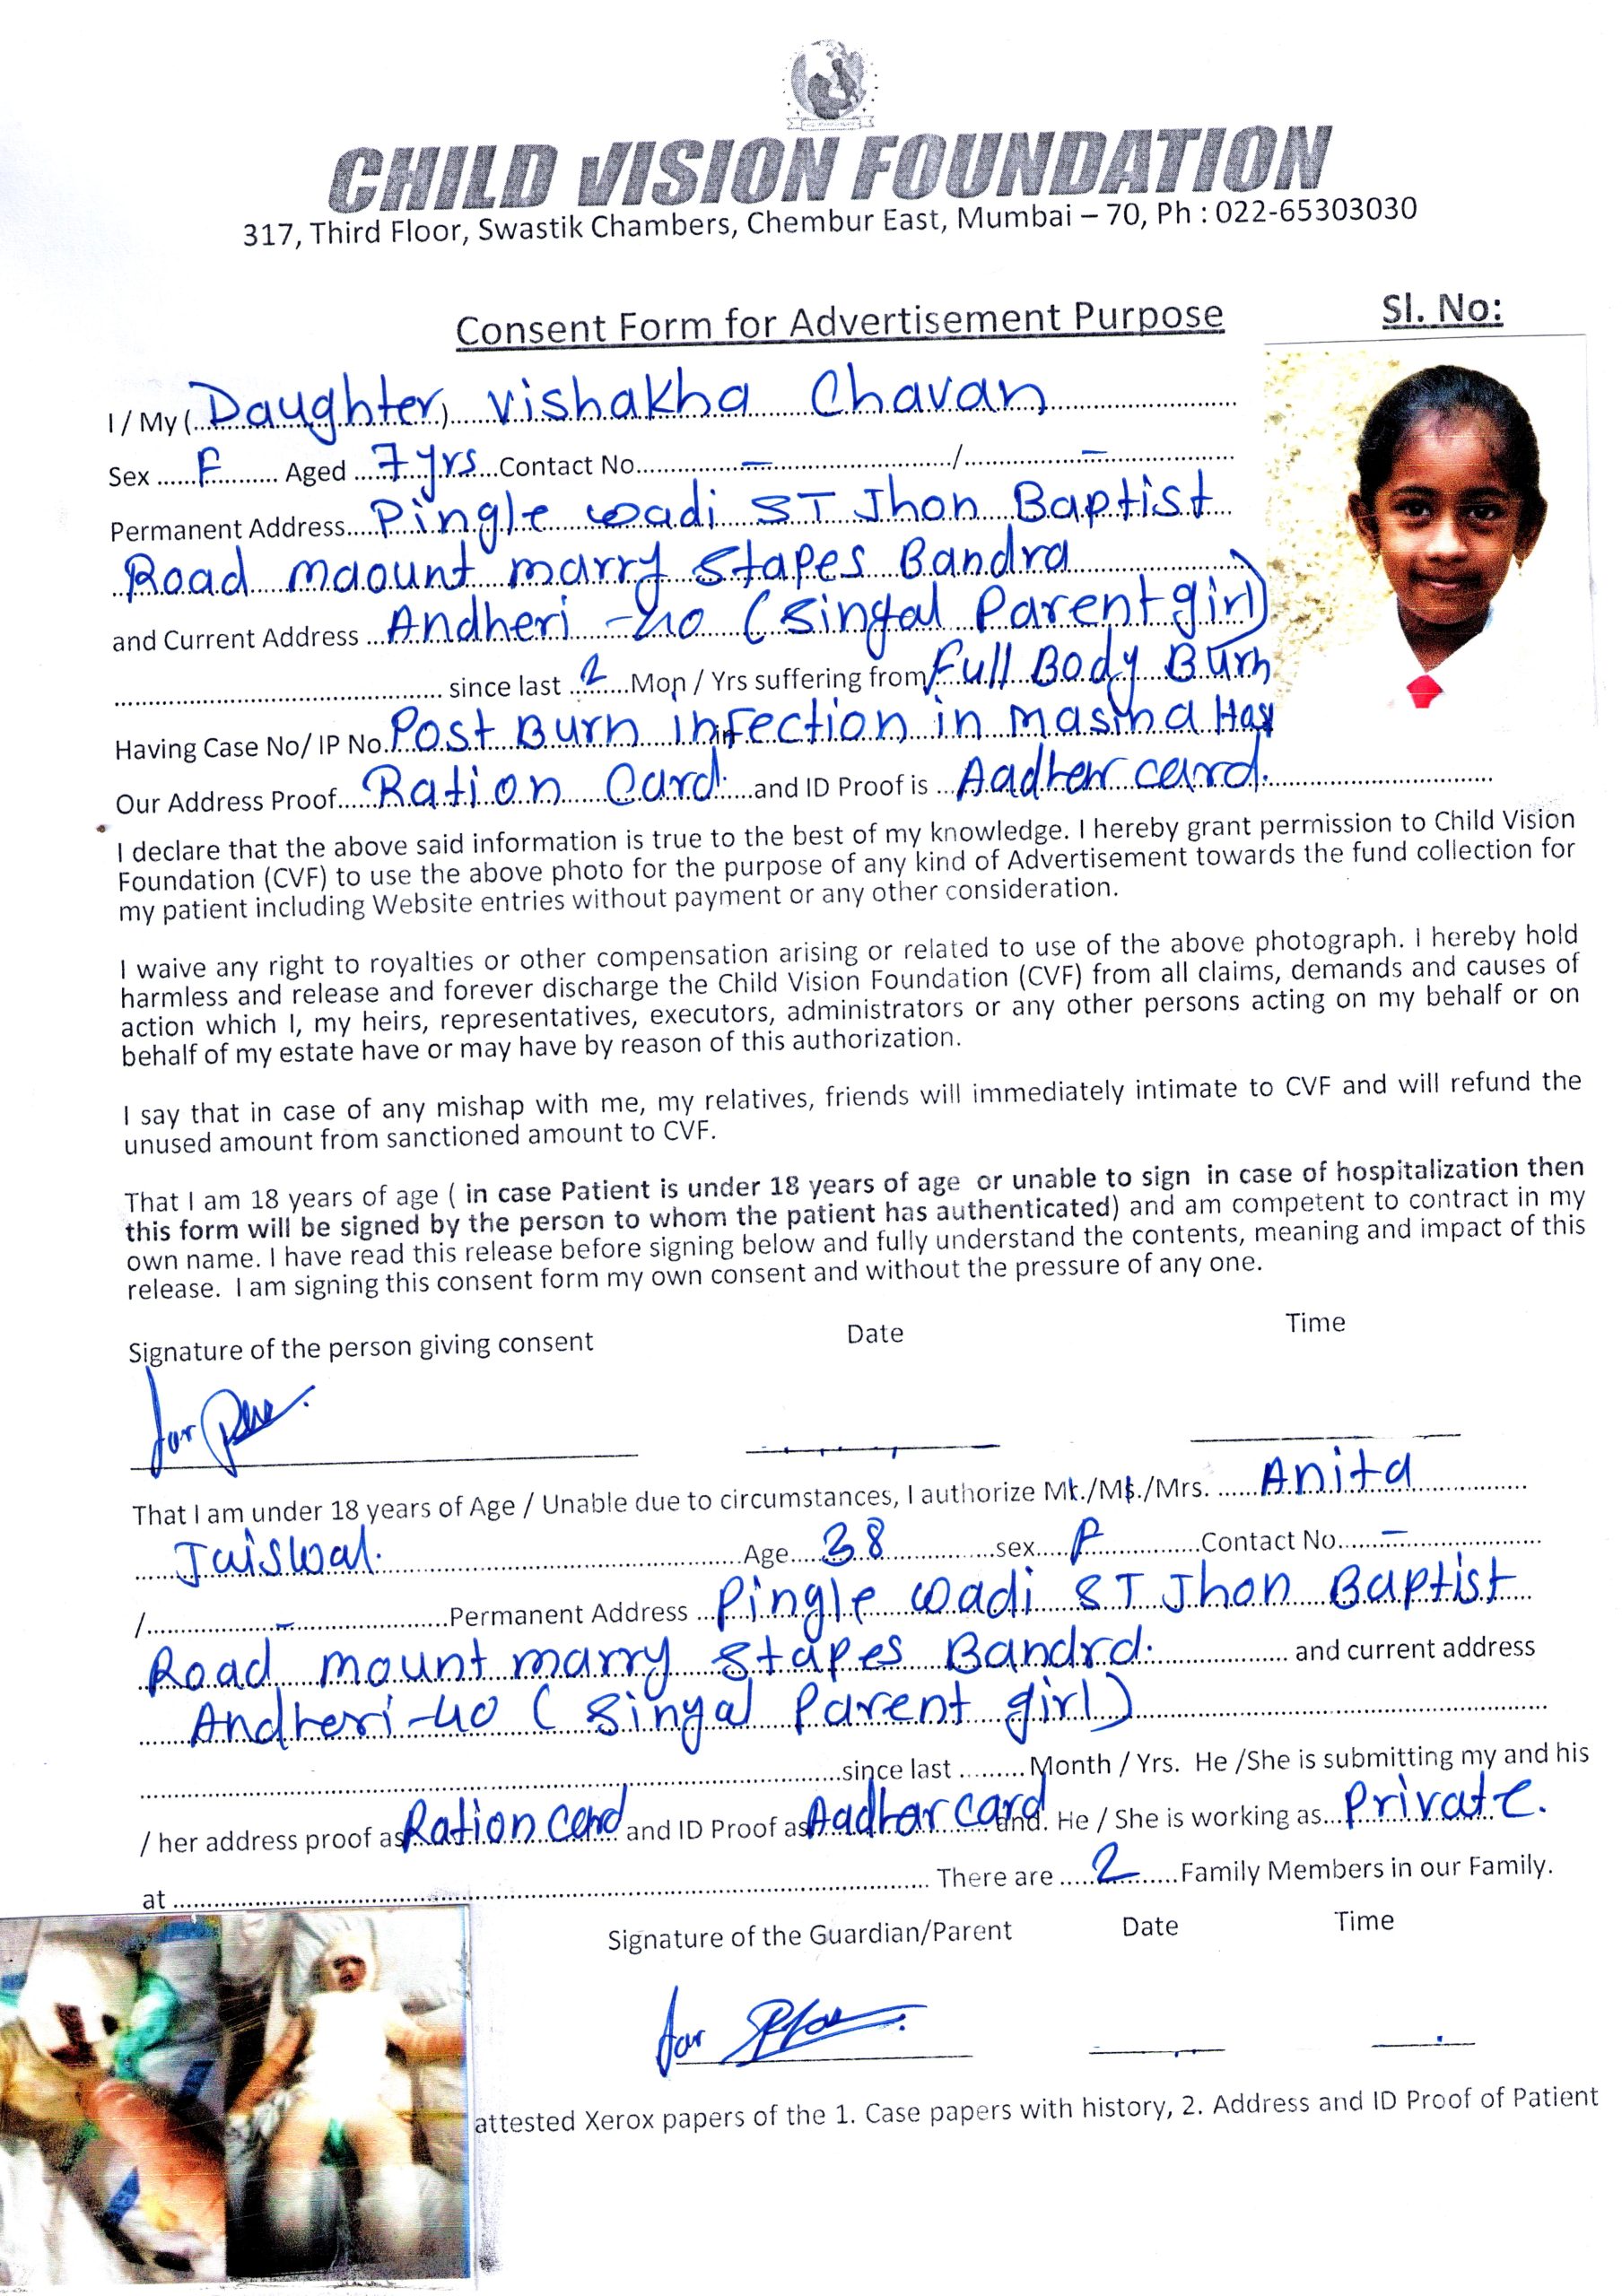 CHILD VISION FOUNDATION
317, Third Floor, Swastik Chambers, Chembur East, Mumbai – 70, Ph : 022-65303030
Consent Form for Advertisement Purpose
Sl. No:
I / My (Daughter) Vishakha Chavan
Sex F Aged 7 yrs Contact No. – / –
Permanent Address Pingle wadi ST Jhon Baptist
Road maount marry stapes Bandra
and Current Address Andheri -40 (Singal Parent girl)
since last 2 Mon / Yrs suffering from Full Body Burn
Having Case No/ IP No. Post Burn infection in masina
Our Address Proof Ration Card and ID Proof is Aadhar card.
I declare that the above said information is true to the best of my knowledge. I hereby grant permission to Child Vision
Foundation (CVF) to use the above photo for the purpose of any kind of Advertisement towards the fund collection for
my patient including Website entries without payment or any other consideration.
I waive any right to royalties or other compensation arising or related to use of the above photograph. I hereby hold
harmless and release and forever discharge the Child Vision Foundation (CVF) from all claims, demands and causes of
action which I, my heirs, representatives, executors, administrators or any other persons acting on my behalf or on
behalf of my estate have or may have by reason of this authorization.
I say that in case of any mishap with me, my relatives, friends will immediately intimate to CVF and will refund the
unused amount from sanctioned amount to CVF.
That I am 18 years of age ( in case Patient is under 18 years of age or unable to sign in case of hospitalization then
this form will be signed by the person to whom the patient has authenticated) and am competent to contract in my
own name. I have read this release before signing below and fully understand the contents, meaning and impact of this
release. I am signing this consent form my own consent and without the pressure of any one.
Signature of the person giving consent Date Time
for
That I am under 18 years of Age / Unable due to circumstances, I authorize Mr./Ms./Mrs. Anita
Jaiswal. Age 38 sex F Contact No. –
/ – Permanent Address Pingle wadi ST Jhon Baptist
Road mount marry stapes Bandra. and current address
Andheri-40 (Singal Parent girl)
since last Month / Yrs. He /She is submitting my and his
/ her address proof as Ration card and ID Proof as Aadhar card and. He / She is working as Private.
at There are 2 Family Members in our Family.
Signature of the Guardian/Parent Date Time
for
attested Xerox papers of the 1. Case papers with history, 2. Address and ID Proof of Patient